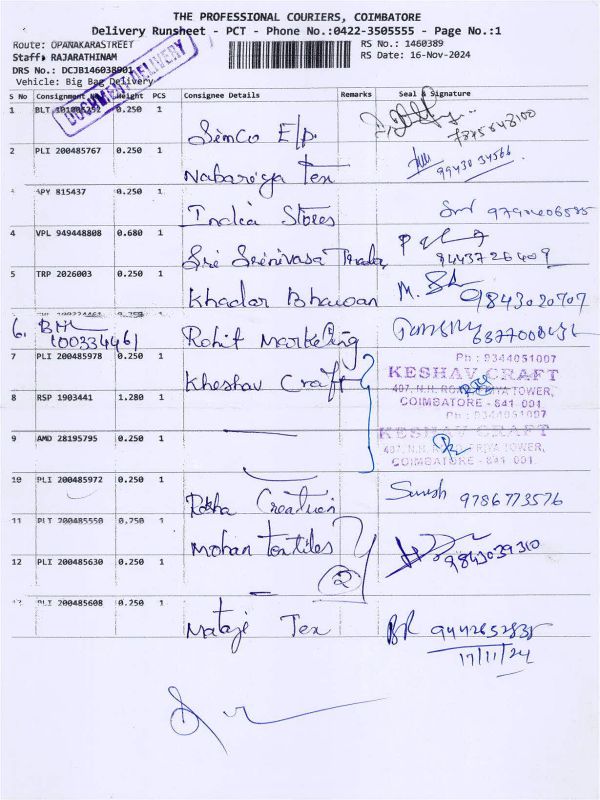 THE PROFESSIONAL COURIERS, COIMBATORE
Delivery Runsheet - PCT - Phone No.:0422-3505555 - Page No.:1
Route: OPANAKARASTREET RS No.: 1460389
Staff: RAJARATHINAM RS Date: 16-Nov-2024
DRS No.: DCJB146038901
Vehicle: Big Bag Delivery
DOCUMENT DELIVERY
S No Consignment PCS Consignee Details Remarks Seal & Signature
1 BLT 0.250 1 Simco E/p. 7845648100
2 PLI 200485767 0.250 1 Nabaroga Tex 9943034566
APY 815437 0.250 1 India Stores
4 VPL 949448808 0.680 1 Sri Srinivasa Trader 9443726409
5 TRP 2026003 0.250 1 Khadar Bhawan 9843020707
6. 100334461 Rohit Marketing
7 PLI 200485978 0.250 1 Kheshav Craft Ph : 9344051007
KESHAV CRAFT
COIMBATORE - 641 001
8 RSP 1903441 1.280 1
Ph : 9344051007
KESHAV CRAFT
9 AMD 28195795 0.250 1
COIMBATORE - 641 001
10 PLI 200485972 0.250 1 Creation Suresh 9786773576
11 PLI 200485550 0.250 1 Mohan textiles 9843039310
12 PLI 200485630 0.250 1 2
PLI 200485608 0.250 1 Mataje Tex BR
17/11/24